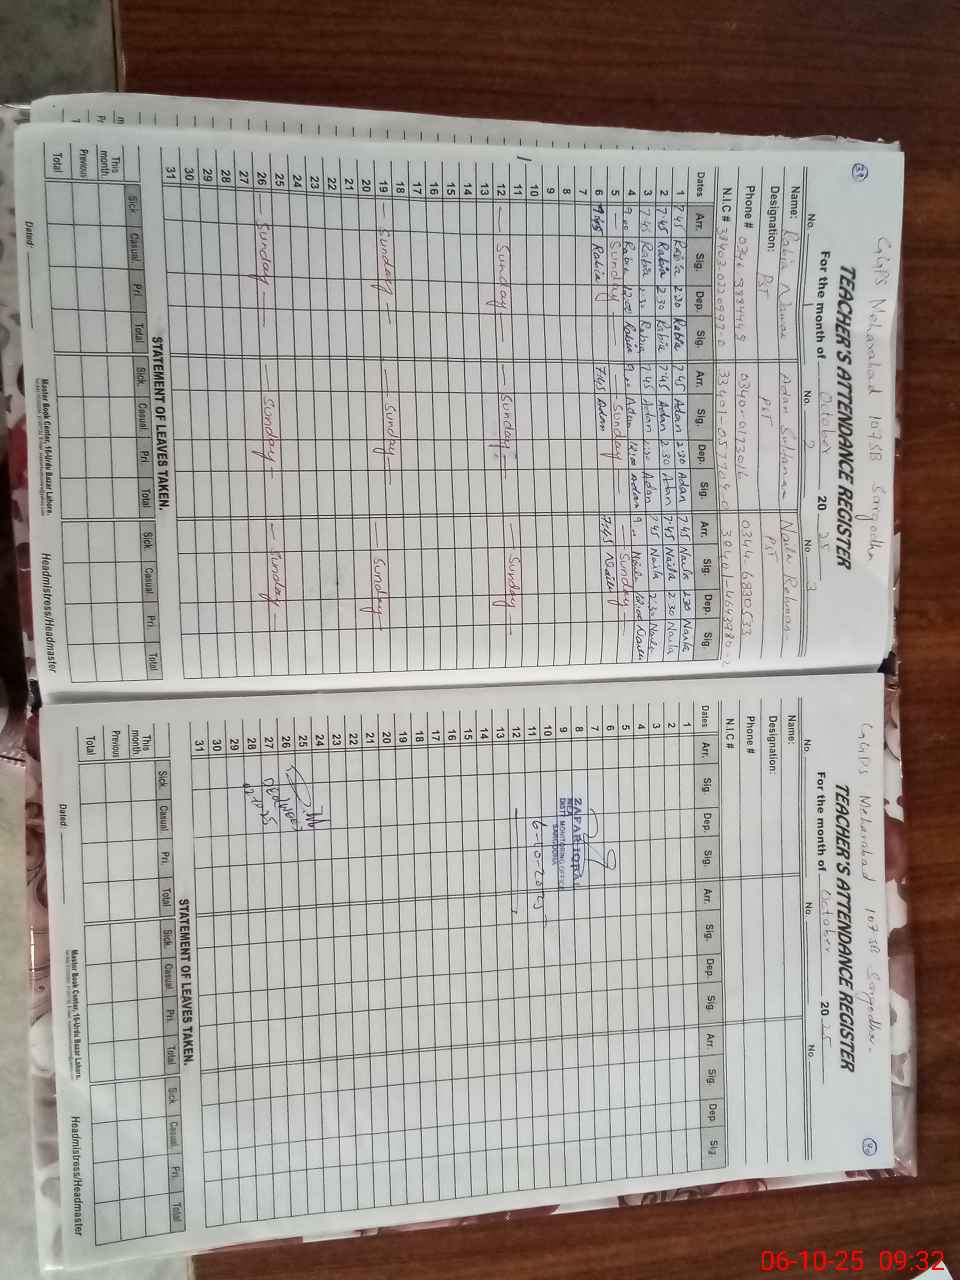 39
GGPS Meharabad 107SB Sargodha
TEACHER'S ATTENDANCE REGISTER
For the month of October 2025
No. 1 No. 2 No. 3
Name: Rabia Nawaz Adan Sultana Naila Rehman
Designation: PST PST PST
Phone # 0340-0173016 0344-6830533
N.I.C #
Dates Arr. Sig. Dep. Sig. Arr. Sig. Dep. Sig. Arr. Sig. Dep. Sig.
1 7:45 Rabia 2:30 Rabia 7:45 Adan 2:30 Adan 7:45 Naila 2:30 Naila
2 7:45 Rabia 2:30 Rabia 7:45 Adan 2:30 Adan 7:45 Naila 2:30 Naila
3 7:45 Rabia 2:30 Rabia 7:45 Adan 2:30 Adan 7:45 Naila 2:30 Naila
4 9:00 Rabia 12:00 Rabia 9:00 Adan 12:00 Adan 9:00 Naila 12:00 Naila
5 Sunday Sunday Sunday
6 7:45 Rabia 7:45 Adan 7:45 Naila
7
8
9
10
11
12 Sunday Sunday Sunday
13
14
15
16
17
18
19 Sunday Sunday Sunday
20
21
22
23
24
25
26 Sunday Sunday Sunday
27
28
29
30
31
STATEMENT OF LEAVES TAKEN.
Sick Casual Pri. Total Sick. Casual Pri Total Sick. Casual Pri. Total
This month.
Previous
Total
Dated:
Master Book Center, 16-Urdu Bazar Lahore.
Headmistress/Headmaster
40
GGPS Meharabad 107SB Sargodha.
TEACHER'S ATTENDANCE REGISTER
For the month of October 2025
No. No. No.
Name:
Designation:
Phone #
N.I.C #
Dates Arr. Sig. Dep. Sig. Arr. Sig. Dep. Sig Arr. Sig. Dep. Sig.
1
2
3
4
5
6
7
8
9
10
11
12
13
14
15
16
17
18
19
20
21
22
23
24
25
26
27
28
29
30
31
ZAFAR IQBAL
MEA
DISTT MONITORING OFFICE
SARGODHA
6-10-2025
STATEMENT OF LEAVES TAKEN.
Sick. Casual Pri. Total Sick. Casual Pri. Total Sick Casual Pri. Total
This month.
Previous
Total
Dated:
Master Book Center, 16-Urdu Bazar Lahore.
Headmistress/Headmaster
06-10-25 09:32